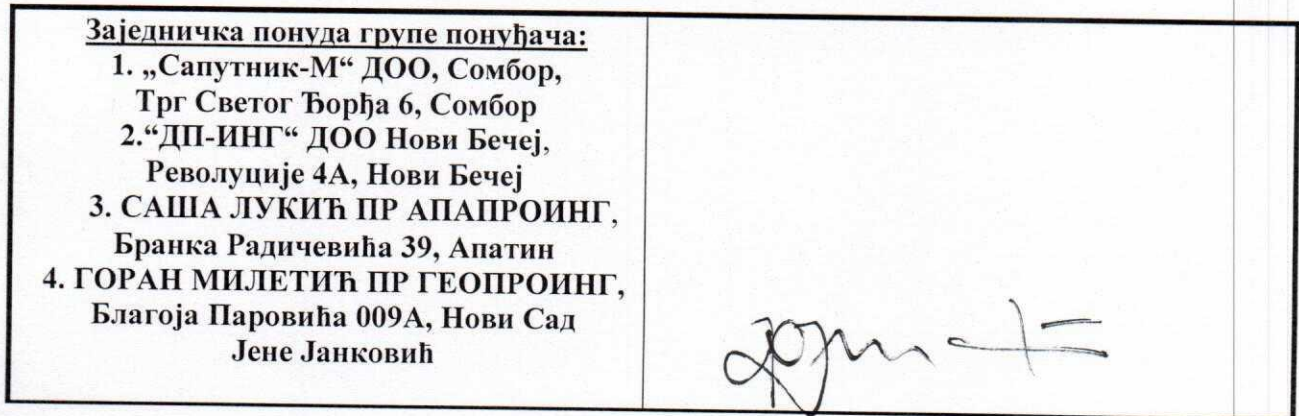 Заједничка понуда групе понуђача:
1. „Сапутник-М“ ДОО, Сомбор,
Трг Светог Ђорђа 6, Сомбор
2.“ДП-ИНГ“ ДОО Нови Бечеј,
Револуције 4А, Нови Бечеј
3. САША ЛУКИЋ ПР АПАПРОИНГ,
Бранка Радичевића 39, Апатин
4. ГОРАН МИЛЕТИЋ ПР ГЕОПРОИНГ,
Благоја Паровића 009А, Нови Сад
Јене Јанковић